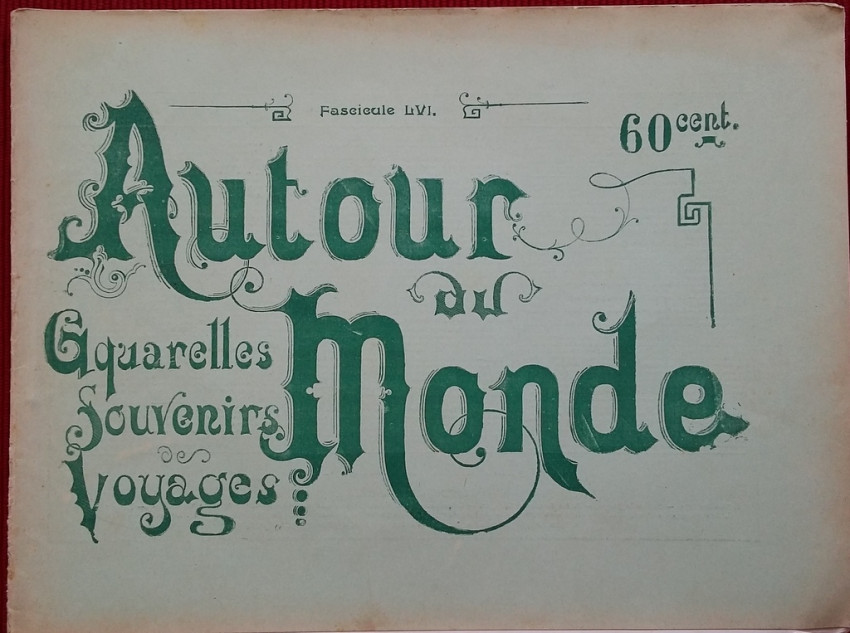 Fascicule LVI.
60 cent.
Autour
du
Monde
Aquarelles
Souvenirs
des
Voyages